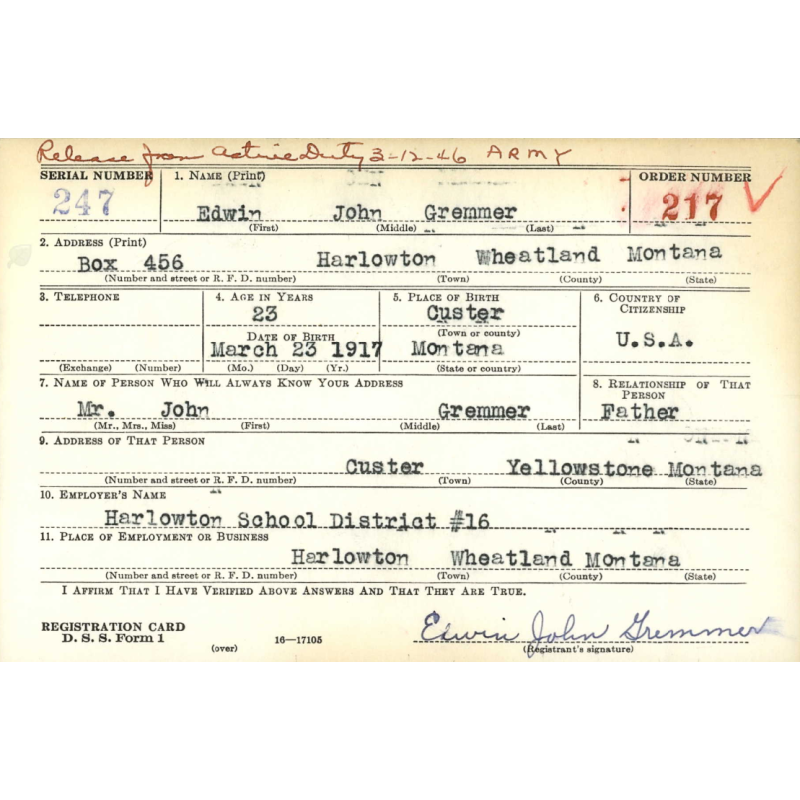 Release from Active Duty 3-12-46 ARMY
SERIAL NUMBER 1. NAME (Print) ORDER NUMBER
247 Edwin John Gremmer 217
(First) (Middle) (Last)
2. ADDRESS (Print)
Box 456 Harlowton Wheatland Montana
(Number and street or R. F. D. number) (Town) (County) (State)
3. TELEPHONE 4. AGE IN YEARS 5. PLACE OF BIRTH 6. COUNTRY OF CITIZENSHIP
23 Custer
DATE OF BIRTH (Town or county) U.S.A.
March 23 1917 Montana
(Exchange) (Number) (Mo.) (Day) (Yr.) (State or country)
7. NAME OF PERSON WHO WILL ALWAYS KNOW YOUR ADDRESS 8. RELATIONSHIP OF THAT PERSON
Mr. John Gremmer Father
(Mr., Mrs., Miss) (First) (Middle) (Last)
9. ADDRESS OF THAT PERSON
Custer Yellowstone Montana
(Number and street or R. F. D. number) (Town) (County) (State)
10. EMPLOYER'S NAME
Harlowton School District #16
11. PLACE OF EMPLOYMENT OR BUSINESS
Harlowton Wheatland Montana
(Number and street or R. F. D. number) (Town) (County) (State)
I AFFIRM THAT I HAVE VERIFIED ABOVE ANSWERS AND THAT THEY ARE TRUE.
REGISTRATION CARD
D. S. S. Form 1 (over) 16—17105 Edwin John Gremmer
(Registrant's signature)